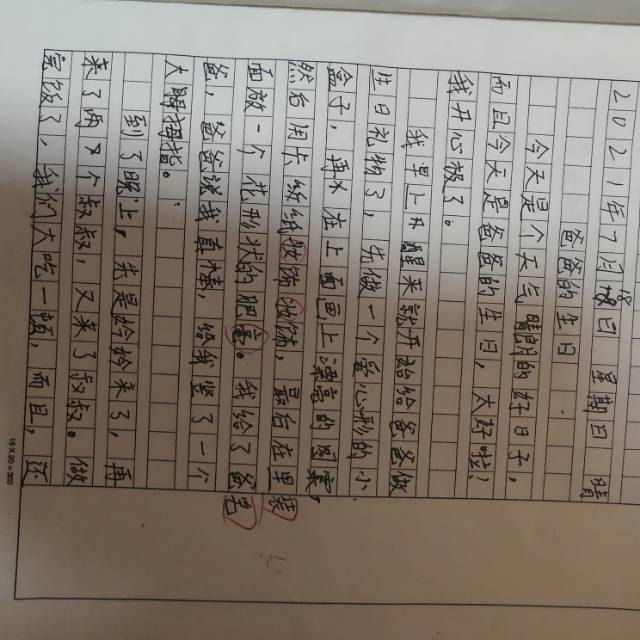 2021年7月日 星期日 晴
爸爸的生日
今天是个天气晴朗的好日子，
而且今天是爸爸的生日，大好啦！
我开心极了。
我早上醒来就开始给爸爸做
生日礼物了，先做一个爱心形的小
盒子，再在上面画上漂亮的图案，
然后用卡纸装饰，最后在里
面放一个花形状的肥皂。我给了爸
爸，爸爸说我真棒，给我竖了一个
大拇指。
到了晚上，先是爷爷来了，再
来了两个叔叔，又来了叔叔。做
完饭了，我们大吃一顿，而且，还
皂
15×20=300